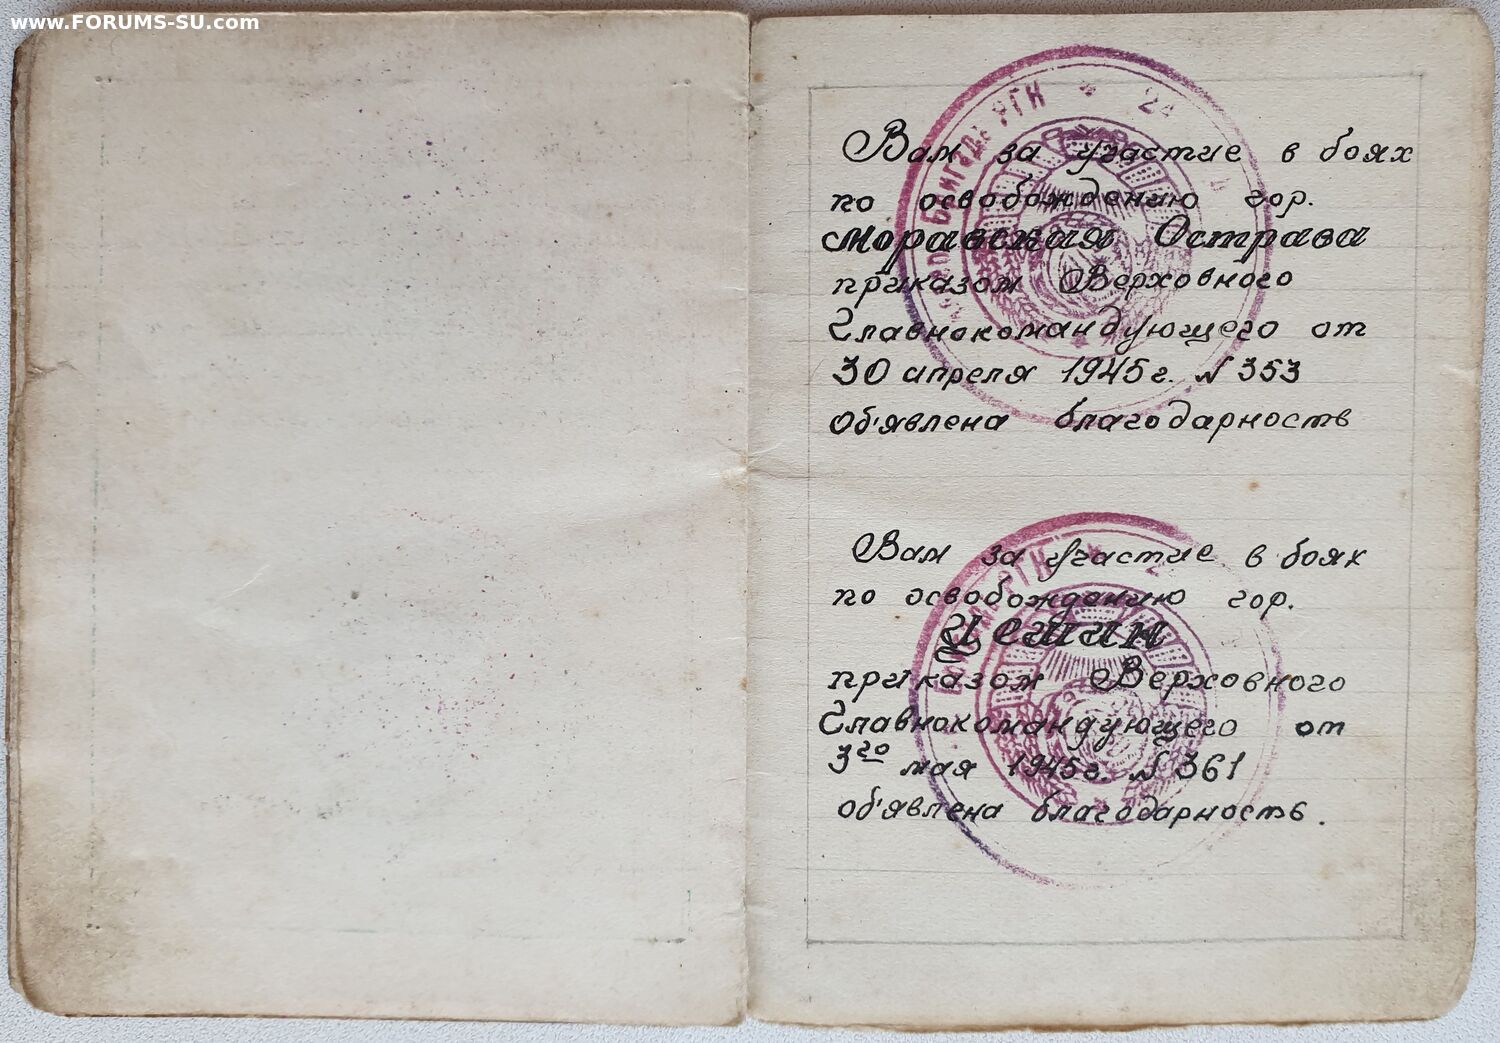 www.FORUMS-SU.com
Вам за участие в боях
по освобождению гор.
Моравская Острава
приказом Верховного
Главнокомандующего от
30 апреля 1945г. № 353
об'явлена благодарность
Вам за участие в боях
по освобождению гор.
Цешин
приказом Верховного
Главнокомандующего от
3го мая 1945г. № 361
об'явлена благодарность.